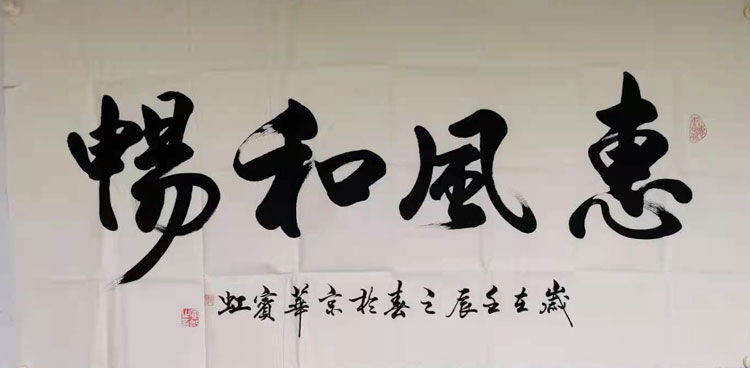 惠風和暢
歲在壬辰之春於京華賓虹